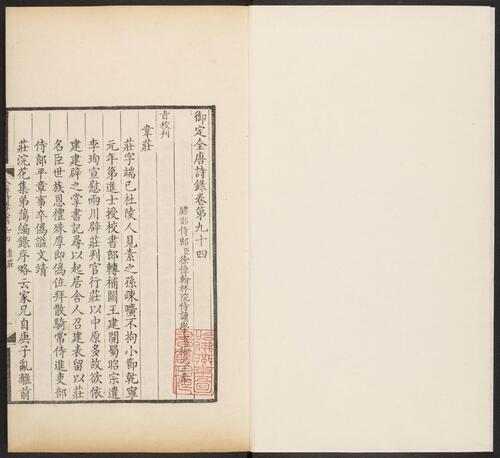 御定全唐詩錄卷第九十四
禮部侍郎臣徐倬翰林院侍讀學士臣
旨校刊
韋莊
莊字端已杜陵人見素之孫疎曠不拘小節乾寧
元年第進士授校書郎轉補闕王建開蜀昭宗遣
李珣宣慰兩川辟莊判官行莊以中原多故欲依
建建辟之掌書記尋以起居舍人召建表留以莊
名臣世族恩禮殊厚即偽位拜散騎常侍進吏部
侍郎平章事卒偽謚文靖
莊浣花集弟藹編錄序略云家兄自庚子亂離前